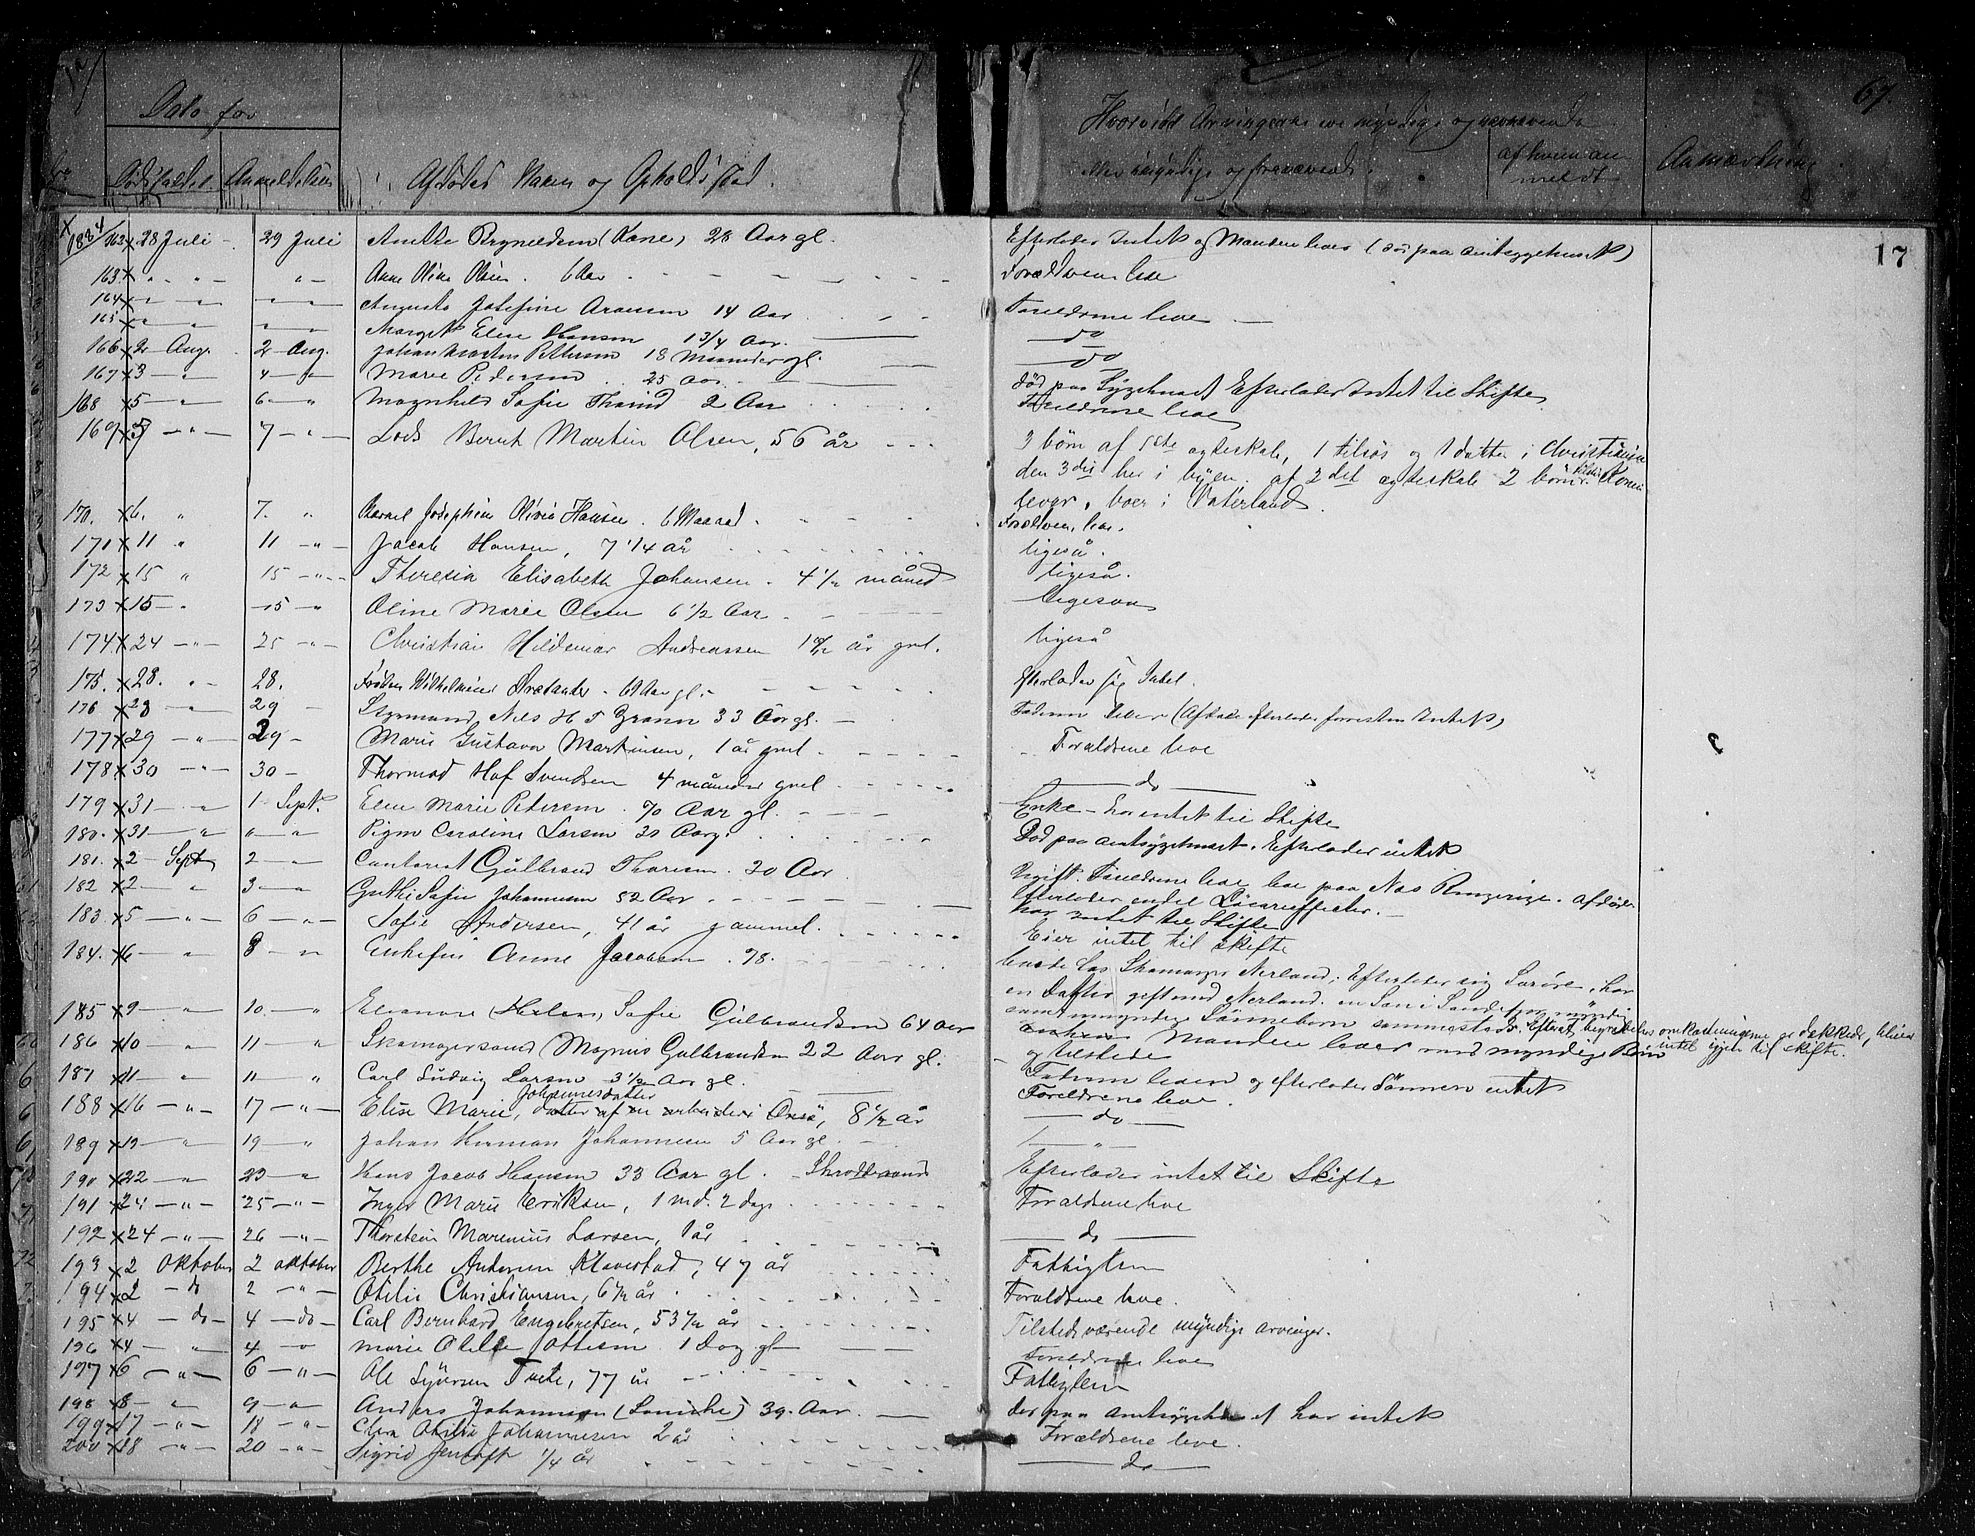 67.
Dato for
Dødsfaldet. Anmeldelsen
Afdødes Navn og Opholdssted.
Hvorvidt Arvingerne ere myndige og nærværende
eller umyndige og fraværende.
af hvem anmeldt
Anmærkning
17
1884
162 x 28 Juli - 29 Juli Anette Brynildsen (Kone) 28 Aar gl. Efterlader Intet og Manden lever (død paa Amtsygehuset)
163 x " " " Anne Oline Olsen. 6 Aar Forældrene leve
164 x " " " Augusta Josefine Aronsen 14 Aar Forældrene leve
165 x " " " Margit Elise Hansen 1 3/4 Aar. do
166 x 2 Aug. 2 Aug. Johan Martin Pettersen 18 Maaneder gl. do
167 x 3 " 4 " Marie Pedersen 25 Aar død paa Sygehuset Efterlader Intet til Skifte
168 x 5 " 6 " Magnhild Sofie Thorud 2 Aar Forældrene leve
169 x 5 " 7 " Lods Bernt Martin Olsen, 56 år 3 børn af 1ste ægteskab, 1 tilsøs og 1 datter i Christiania
den 3die her i byen. af 2det ægteskab 2 børn. Konen
lever, boer i Vaterland.
170. x 6. " 7. " Josephine Olivia Hansen. 6 Maaned. Forældrene leve.
171 x 11 " 11 " Jacob Hansen, 7 1/4 år ligeså.
172 x 15 " 15 " Theresia Elisabeth Johansen. 4 1/2 måned ligeså.
173 x 15 " 15 " Oline Marie Olsen 6 1/2 Aar ligesaa
174 x 24 " 25 " Christian Hildemar Andreassen år gml. ligeså
175. x 28. " 28. Frøken Wilhelmine 69 Aar gl. Efterlader sig Intet.
176 x 28 " 29 - Styrmand Nils H T Brann 33 Aar gl. Faderen lever (Afdøde efterlader forresten Intet)
177 x 29 " 29 - Marie Gustava Martinsen, 1 år gml. Forældrene leve
178 x 30 " 30 - Thormod Hof Svendsen 4 måneder gml do
179 x 31 " 1 Sept. Elen Marie Petersen. 70 Aar gl. Enke - har intet til Skifte
180. x 31 " " " Pigen Caroline Larsen 20 Aar g. Død paa Amtsygehuset. Efterlader intet
181. x 2 Sept 2 " Gulbrand Thoresen. 30 Aar Ugift. Forældrene leve boe paa Næs Ringerige. Afdøde
efterlader endel Løsøreeffecter.
182 x 2 " 3 " Sofie Johannesen 52 Aar har intet til Skifte
183. x 5 " 6 " Sofie Andersen, 41 år gammel. Eier intet til skifte
184. x 6 " 8 " Enkefru Anne Jacobsen. 78. boede hos Skomager Nerland. Efterlader sig Løsøre, har
en Datter gift med Nerland. en Søn i Sandefjord myndig
samt myndige Sønnebørn sammesteds. Efterat begravelses omkostningerne er dækkede, blier
intet igjen til skifte.
185 x 9 " 10. " Eleonore (Helene) Sofie Gulbrandsen 64 Aar Manden lever med myndige Børn
og tilstede
186 x 10 " 11 " Skomagersvend Magnus Gulbrandsen 22 Aar gl. Faderen lever og efterlader Sønnen intet
187 x 11 " 11 " Carl Ludvig Larsen 3 1/2 Aar gl. Forældrene leve.
188 x 16 " 17 " Elise Marie, Johannesdatter datter af en arbeider i Onsø, 8 1/2 år do
189 x 19 " 19 " Johan Herman Johannesen 5 Aar gl. "
190 x 22 " 23 " Hans Jacob Hansen 33 Aar gl. Efterlader intet til Skifte
191 x 24 " 25 " Inger Marie Eriksen, 1 md. 2 dage Forældrene leve
192 x 24 " 26 " Thorstein Marenius Larsen, 1 år do
193 x 2 oktober 2 oktober Berthe Antonsen Klavestad, 47 år Fattiglem
194 x 2 do 2 " Otilie Christiansen, 6 1/2 år Forældrene leve.
195 x 4 do 4 do Carl Bernhard Engebretsen, 53 1/2 år Tilstedeværende myndige arvinger.
196 x 4 " 4 " Marie Otilie Ottesen. 1 Dag gl Forældrene leve
197 x 6 " 6 " Ole Syversen Tvete, 77 år Fattiglem
198 x 8 " 9 " Anders Johannesen 39. Aar. død paa Amtsygehuset har intet
199 x 17 " 18 " Clara Otilie Johannesen 2 år Forældrene leve.
200 x 18 " 20 " Sigrid Jentoft 1/4 år do